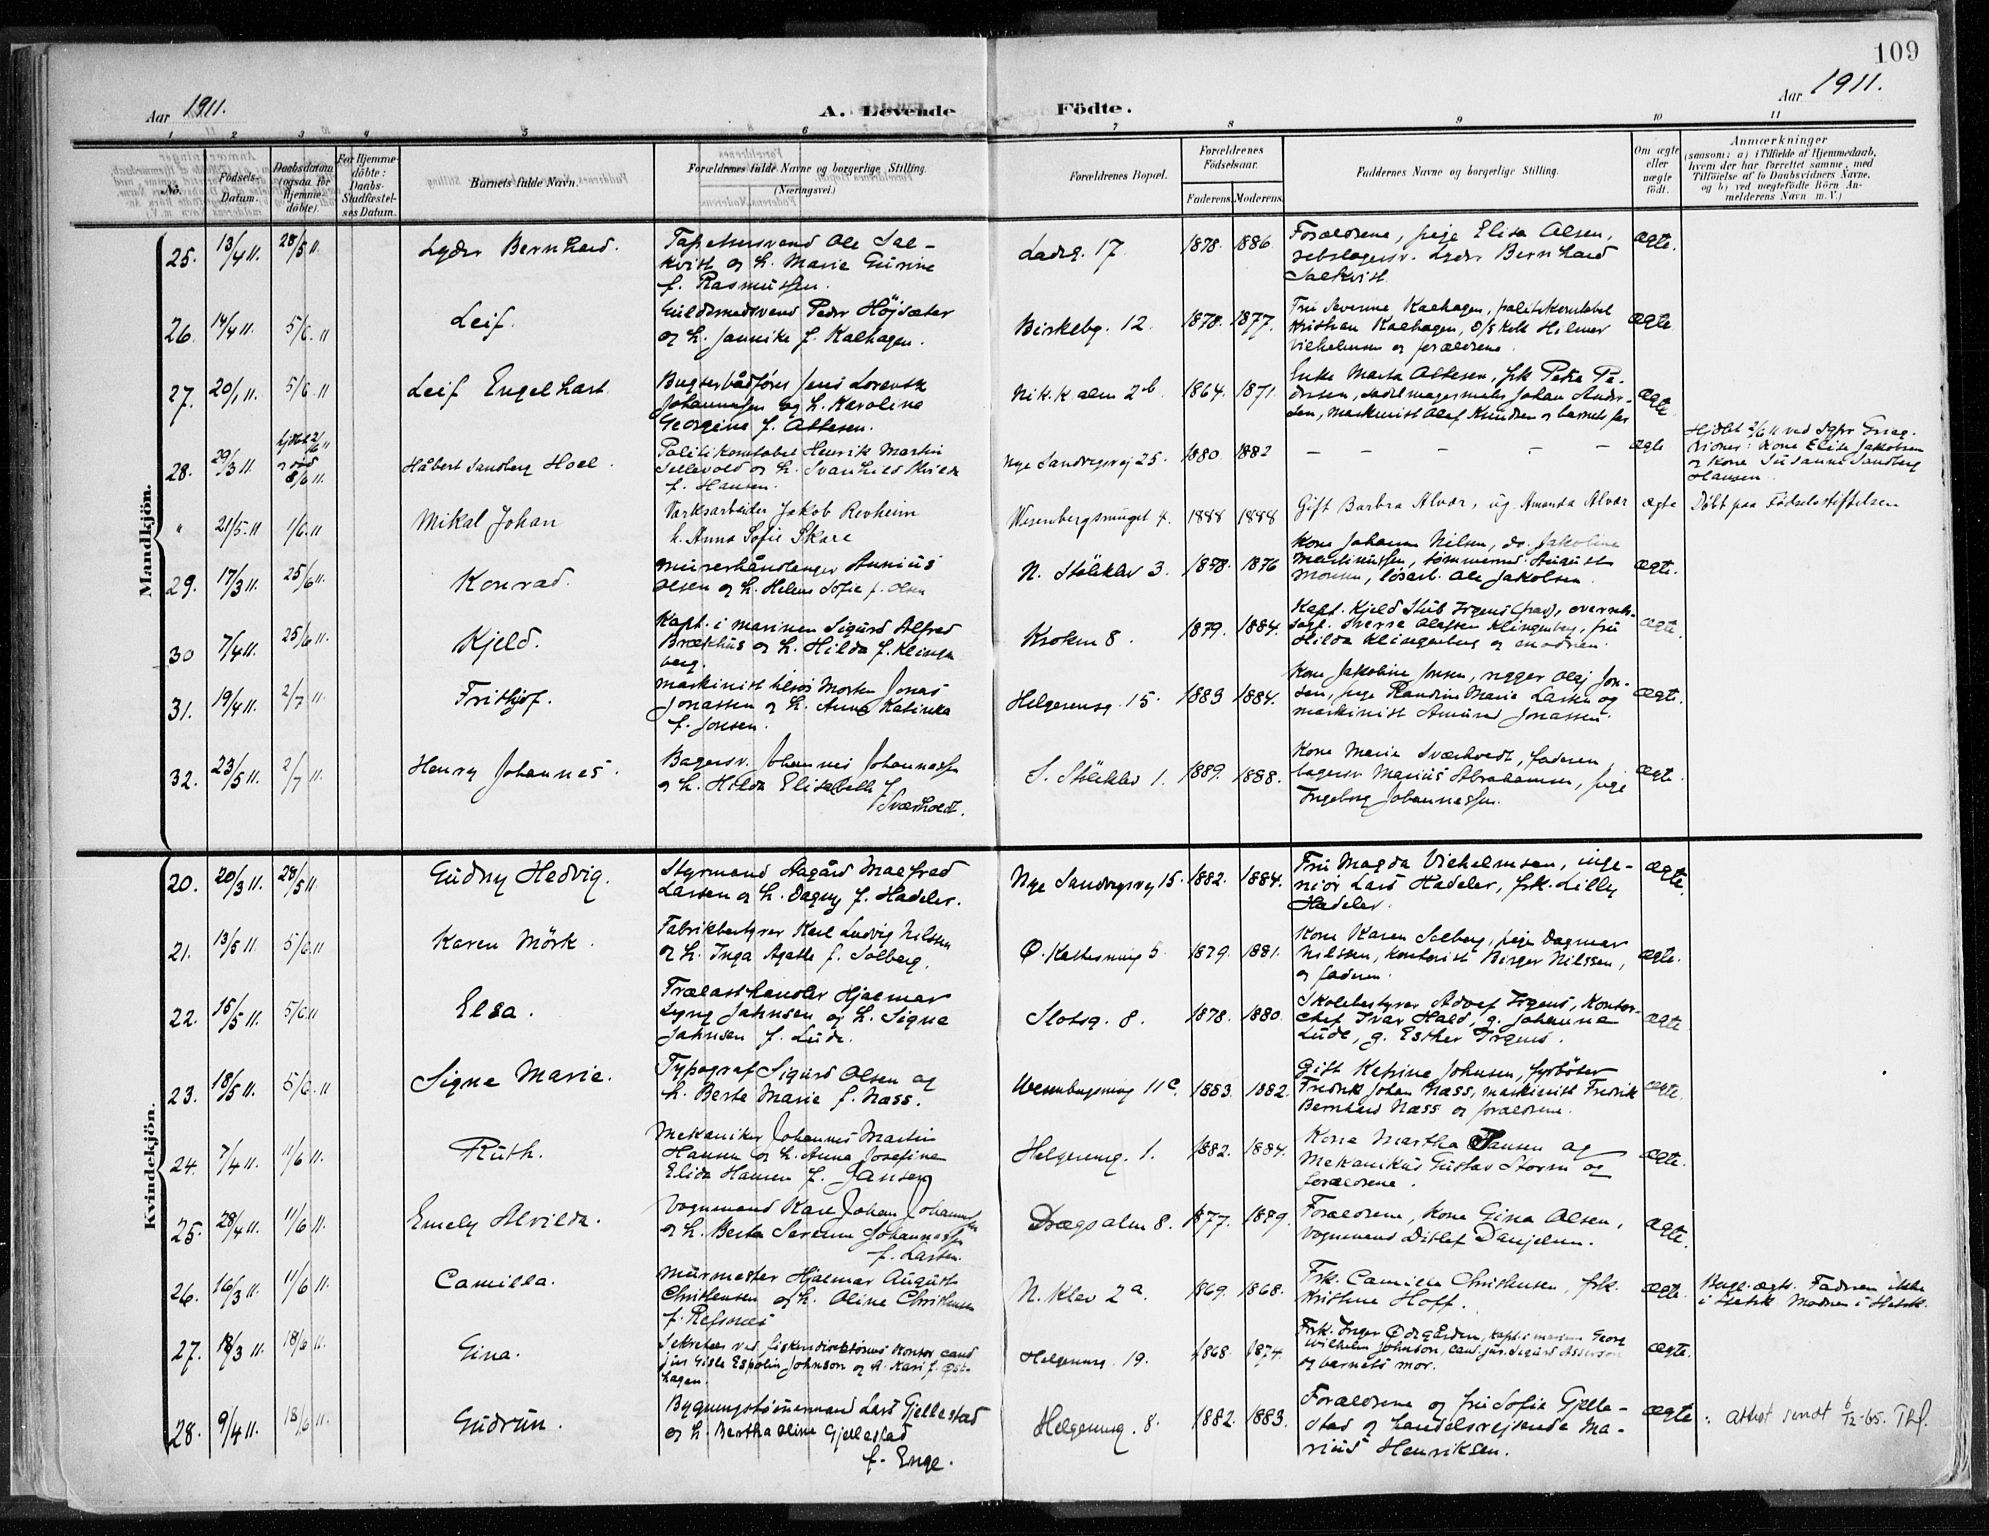 109
Aar 1911.
A. Levende Födte.
Aar 1911.
1 2 3 4 5 6 7 8 9 10 11
No.
Fødsels-Datum.
Daabsdatum (ogsaa for Hjemme-döbte).
For Hjemme-döbte: Daabs-Stadfæstel-ses Datum.
Barnets fulde Navn.
Forældrenes fulde Navne og borgerlige Stilling. (Næringsvei.)
Forældrenes Bopæl.
Forældrenes Födselsaar.
Faderens. Moderens.
Faddernes Navne og borgerlige Stilling.
Om ægte eller uægte födt.
Anmærkninger
(saasom: a) i Tilfælde af Hjemmedaab, hvem der har forrettet samme, med Tilföielse af to Daabsvidners Navne, og b) ved uægtefödte Börn An-melderens Navn m. V.)
Mandkjön.
25. 13/4 11. 28/5 11 Lyder Bernhard. Tapetsersvend Ole Sal-
kvist og h. Marie Gurine
f. Rasmussen.
Ladeg. 17. 1878. 1886. Forældrene, pige Elisa Olsen,
rebslagersv. Lyder Bernhard
Salkvist. ægte.
26. 14/4 11. 5/6. 11 Leif. Guldsmedsvend Peder Højsæter
og h. Jannike f. Kalhagen.
Birkebg. 12. 1878. 1877. Fru Severine Kalhagen, politikonstabel
Kristian Kalhagen, Hilmer
Vilhelmsen og forældrene. ægte
27. 20/1 11. 5/6 11 Leif Engelhart. Bugserbådfører Jens Lorentz
Johannessen og h. Karoline
Georgine f. Attesen.
Nik. k alm 2b 1864. 1871. Enke Marta Attesen, frk Petra Pe-
dersen, sadelmagermester Johan Ander-
sen, maskinist Olaf Knudsen og barnets far ægte
28. 29/3 11. hjdøbt 2/6 11 8/6 11. Håbert Sandberg Hoel. Politikonstabel Henrik Martin
Sellevold og h. Svanhild
f. Hansen.
Nye Sandvigsvej 25. 1880 1882 – – – – – ægte Hjdbt 2/6 11 ved Sgpr Grieg.
Vidner: Kone Elise Jakobsen
og Kone Susanne Sandberg
Hansen.
" 21/5. 11 1/6. 11 Mikal Johan Verksarbeider Jakob Revheim
h. Anna Sofie Skare
Wesenbergsmuget 4. 1888 1888 Gift Barbra Alvær, ug. Amanda Alvær ægte Döbt paa Födselsstiftelsen
29. 17/3 11. 25/6 11. Konrad. Murerhåndlanger Annius
Olsen og h. Helene Sofie f. Olsen
N. Stöleklev 3. 1878. 1876 Kone Johanne Nilsen, do. Jakobine
Martinussen, tømmermd. August
Monsen, løsarb. Ole Jakobsen. ægte.
30 7/4 11. 25/6 11. Kjeld. Kapt. i marinen Sigurd Alfred
Brækhus og h. Hilda f. Klingen
berg.
Kroken 8. 1879. 1884. Kapt. Kjeld Stub Irgens (frav),
Sverre Olafsen Klingenberg, fru
Hilda Klingenberg og moderen. ægte.
31. 19/4 11. 2/7 11 Frithjof. Maskinist Morten Jonas
Jonassen og h. Anna Katinka
f. Jonsen.
Helgesensg. 15. 1883 1884. Kone Jakobine Jonsen, rigger Olaj Jon-
sen, pige Randine Marie Larsen og
maskinist Amund Jonassen. ægte.
32. 23/5 11. 2/7 11. Henry Johannes. Bagersv. Johannes Johannessen
og h. Hilda Elisabeth f.
Sværholdt.
S. Stöleklev 1. 1889. 1888. Kone Marie Sværholdt, faderen,
bagersv Marius Abrahamsen, pige
Ingeborg Johannessen. ægte.
Kvindekjön.
20. 20/3 11. 28/5 11 Gudny Hedvig. Styrmand Aagård Malfred
Larsen og h. Dagny f. Hadeler.
Nye Sandvigsvej 15. 1882. 1884. Fru Magda Vilhelmsen, inge-
niør Lars Hadeler, frk. Lilly
Hadeler. ægte.
21. 13/5 11. 5/6. 11 Karen Mörk. Fabrikbestyrer Karl Ludvig Nilssen
og h. Inga Agathe f. Solberg.
Ø. 5. 1879. 1881. Kone Karen Solberg, pige Dagmar
Nilssen, kontorist Birger Nilssen,
og faderen. ægte.
22. 15/5 11. 5/6 11 Elsa. Trælasthandler Hjalmar
Lyng Jahnsen og h. Signe
Jahnsen f. Lude.
Slotsg. 8. 1878. 1880. Skolebestyrer Adolf Irgens, Kontor-
chef Ivar Hald, g. Johanna
Lude, g. Esther Irgens. ægte
23. 18/5 11. 5/6. 11 Signe Marie. Typograf Sigurd Olsen og
h. Berte Marie f. Næss.
Wesenbergsmug 11c. 1883. 1882. Gift Katrine Johnsen, fyrbøter
Fredrik Johan Næss, maskinist Fredrik
Bernhard Næss og forældrene. ægte.
24. 7/4 11. 11/6 11. Ruth. Mekaniker Johannes Martin
Hansen og h. Anna Josefine
Elida Hansen f. Jansen
Helgesensg. 1. 1882. 1884. Kone Martha Jansen og
Mekanikus Gustav Storm og
forældrene. ægte.
25. 28/4 11. 11/6 11. Emely Alvilda. Vognmand Karl Johan Johannessen
og h. Berta Severine Johannessen
f. Larsen.
Drægsalm 8. 1877. 1879. Forældrene, Kone Gina Olsen,
vognmand Ditlef Danjelsen. ægte.
26. 16/3 11. 11/6 11. Camilla. Murmester Hjalmar August
Christensen og h. Oline Christensen
f. Refsnes
N. Klev 2a. 1869. 1868. Frk. Camilla Christensen, frk.
Kristine Hoff. ægte. Borgl. ægt. Faderen ikke
i Statsk Moderen i Statsk.
27. 18/3 11. 18/6 11. Gina. Sekretær ved fiskeridirektørens kontor cand
jur Gisle Espolin Johnson og h. Kari f. Øde-
hagen.
Helgesensg. 19. 1868. 1874. Frk. Inger Ødegården, kapt. i marinen Georg
Wilhelm Johnson, cand. jur. Sigurd Asserson
og barnets mor. ægte.
28. 9/4 11. 18/6 11. Gudrun. Bygningstømmermand Lars Gjellestad
og h. Bertha Oline Gjellestad
f. Enge.
Helgesensg. 8. 1882. 1883. Forældrene og fru Sofie Gjelle-
stad og handelsrejsende Ma-
rius Henriksen. ægte Attest sendt 6/12-65. Thf.